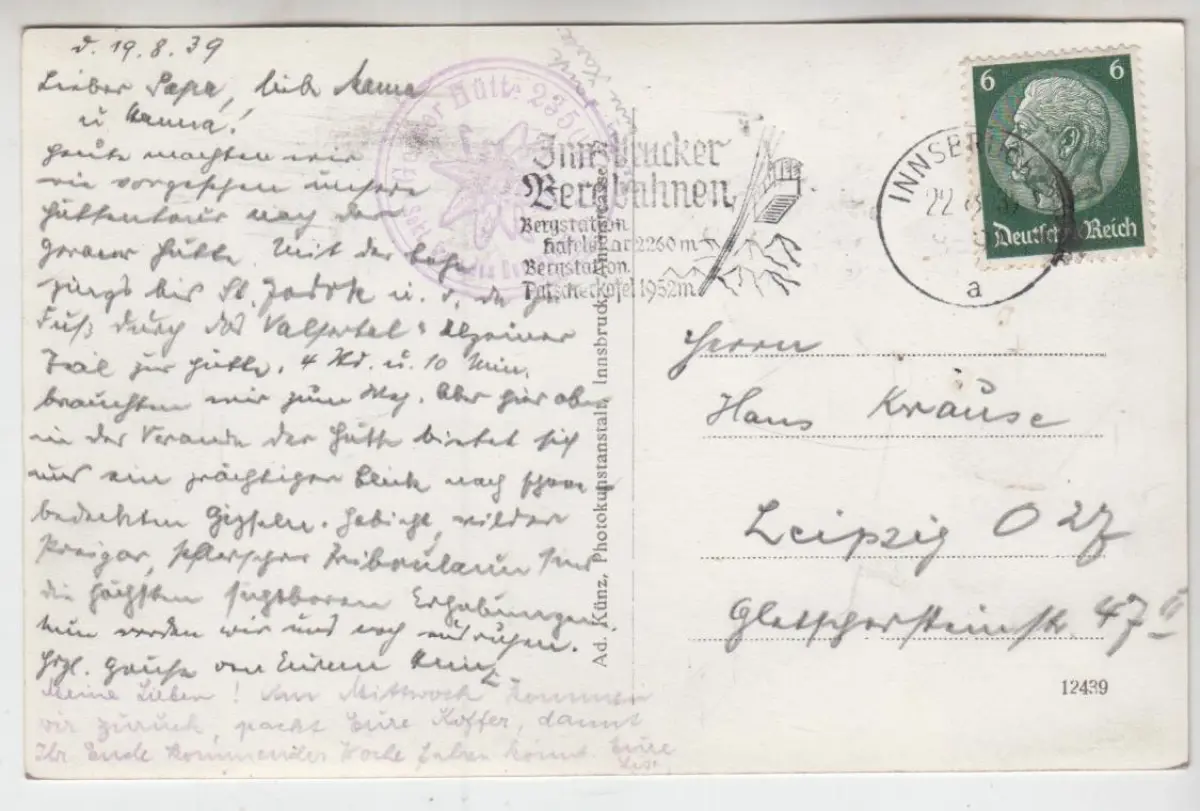 d. 19.8.39
Lieber Papa, liebe Mama
u. Hanna!
Heute machten wir
wie vorgesehen unsere
Hüttentour nach der
Geraer Hütte. Mit der Bahn
gings bis St. Jodok u. v. da zu
Fuß durch das Valsertal
Tal zur Hütte. 4 Std. u. 10 Min.
brauchten wir zum Weg. Aber hier oben
in der Veranda der Hütte bietet sich
uns ein prächtiger Blick nach schnee-
bedeckten Gipfeln. Habicht, wilder
Freiger, Pflerscher Tribulaun sind
die höchsten sichtbaren Erhebungen.
Nun werden wir uns noch ausruhen.
Hrzl. Grüße von Eurem
Meine Lieben! Am Mittwoch kommen
wir zurück, packt Eure Koffer, damit
Ihr Ende kommender Woche fahren könnt. Eure
Hütte
Innsbrucker
Bergbahnen
Bergstation
Hafelekar 2260 m
Bergstation
Patscherkofel 1952 m
INNSBRUCK
22
a
6 6
Deutsches Reich
Herrn
Hans Krause
Leipzig O 27
Gletschersteinstr. 47 II
12439
Ad. Künz, Photokunstanstalt, Innsbruck